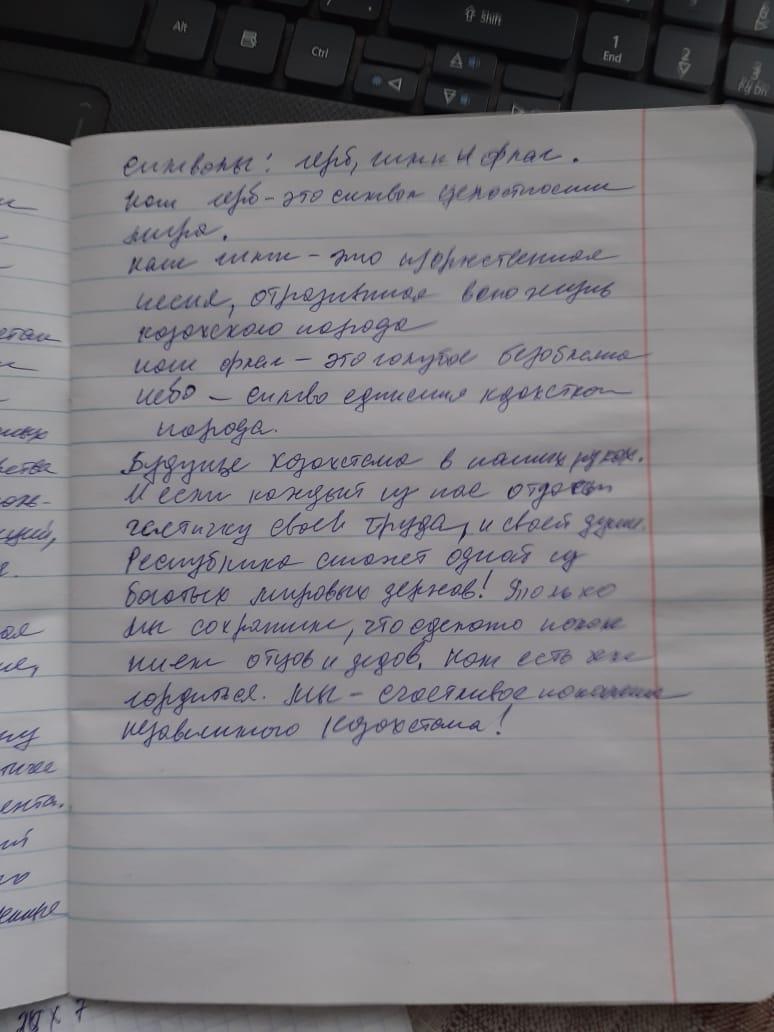 символы: герб, гимн и флаг.
Наш герб - это символ целостности
мира.
Наш гимн - это торжественная
песня, отразившая волю жизнь
казахского народа
Наш флаг - это голубое безоблачно
небо - симво единения
народа.
Будущее Казахстана в наших руках.
И если каждый из нас отдаст
частичку своей труда, и своей души.
Республика станет одной из
богатых мировых держав! Только
мы сохраним, что сделано поколе
нием отцов и дедов. Нам есть чем
гордиться. Мы - счастливое поколение
независимого Казахстана!
етан
ства
ций,
ента.
7
Alt
Ctrl
Shift
1
End
2
3
Pg Dn